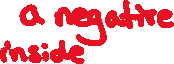 a negative
inside